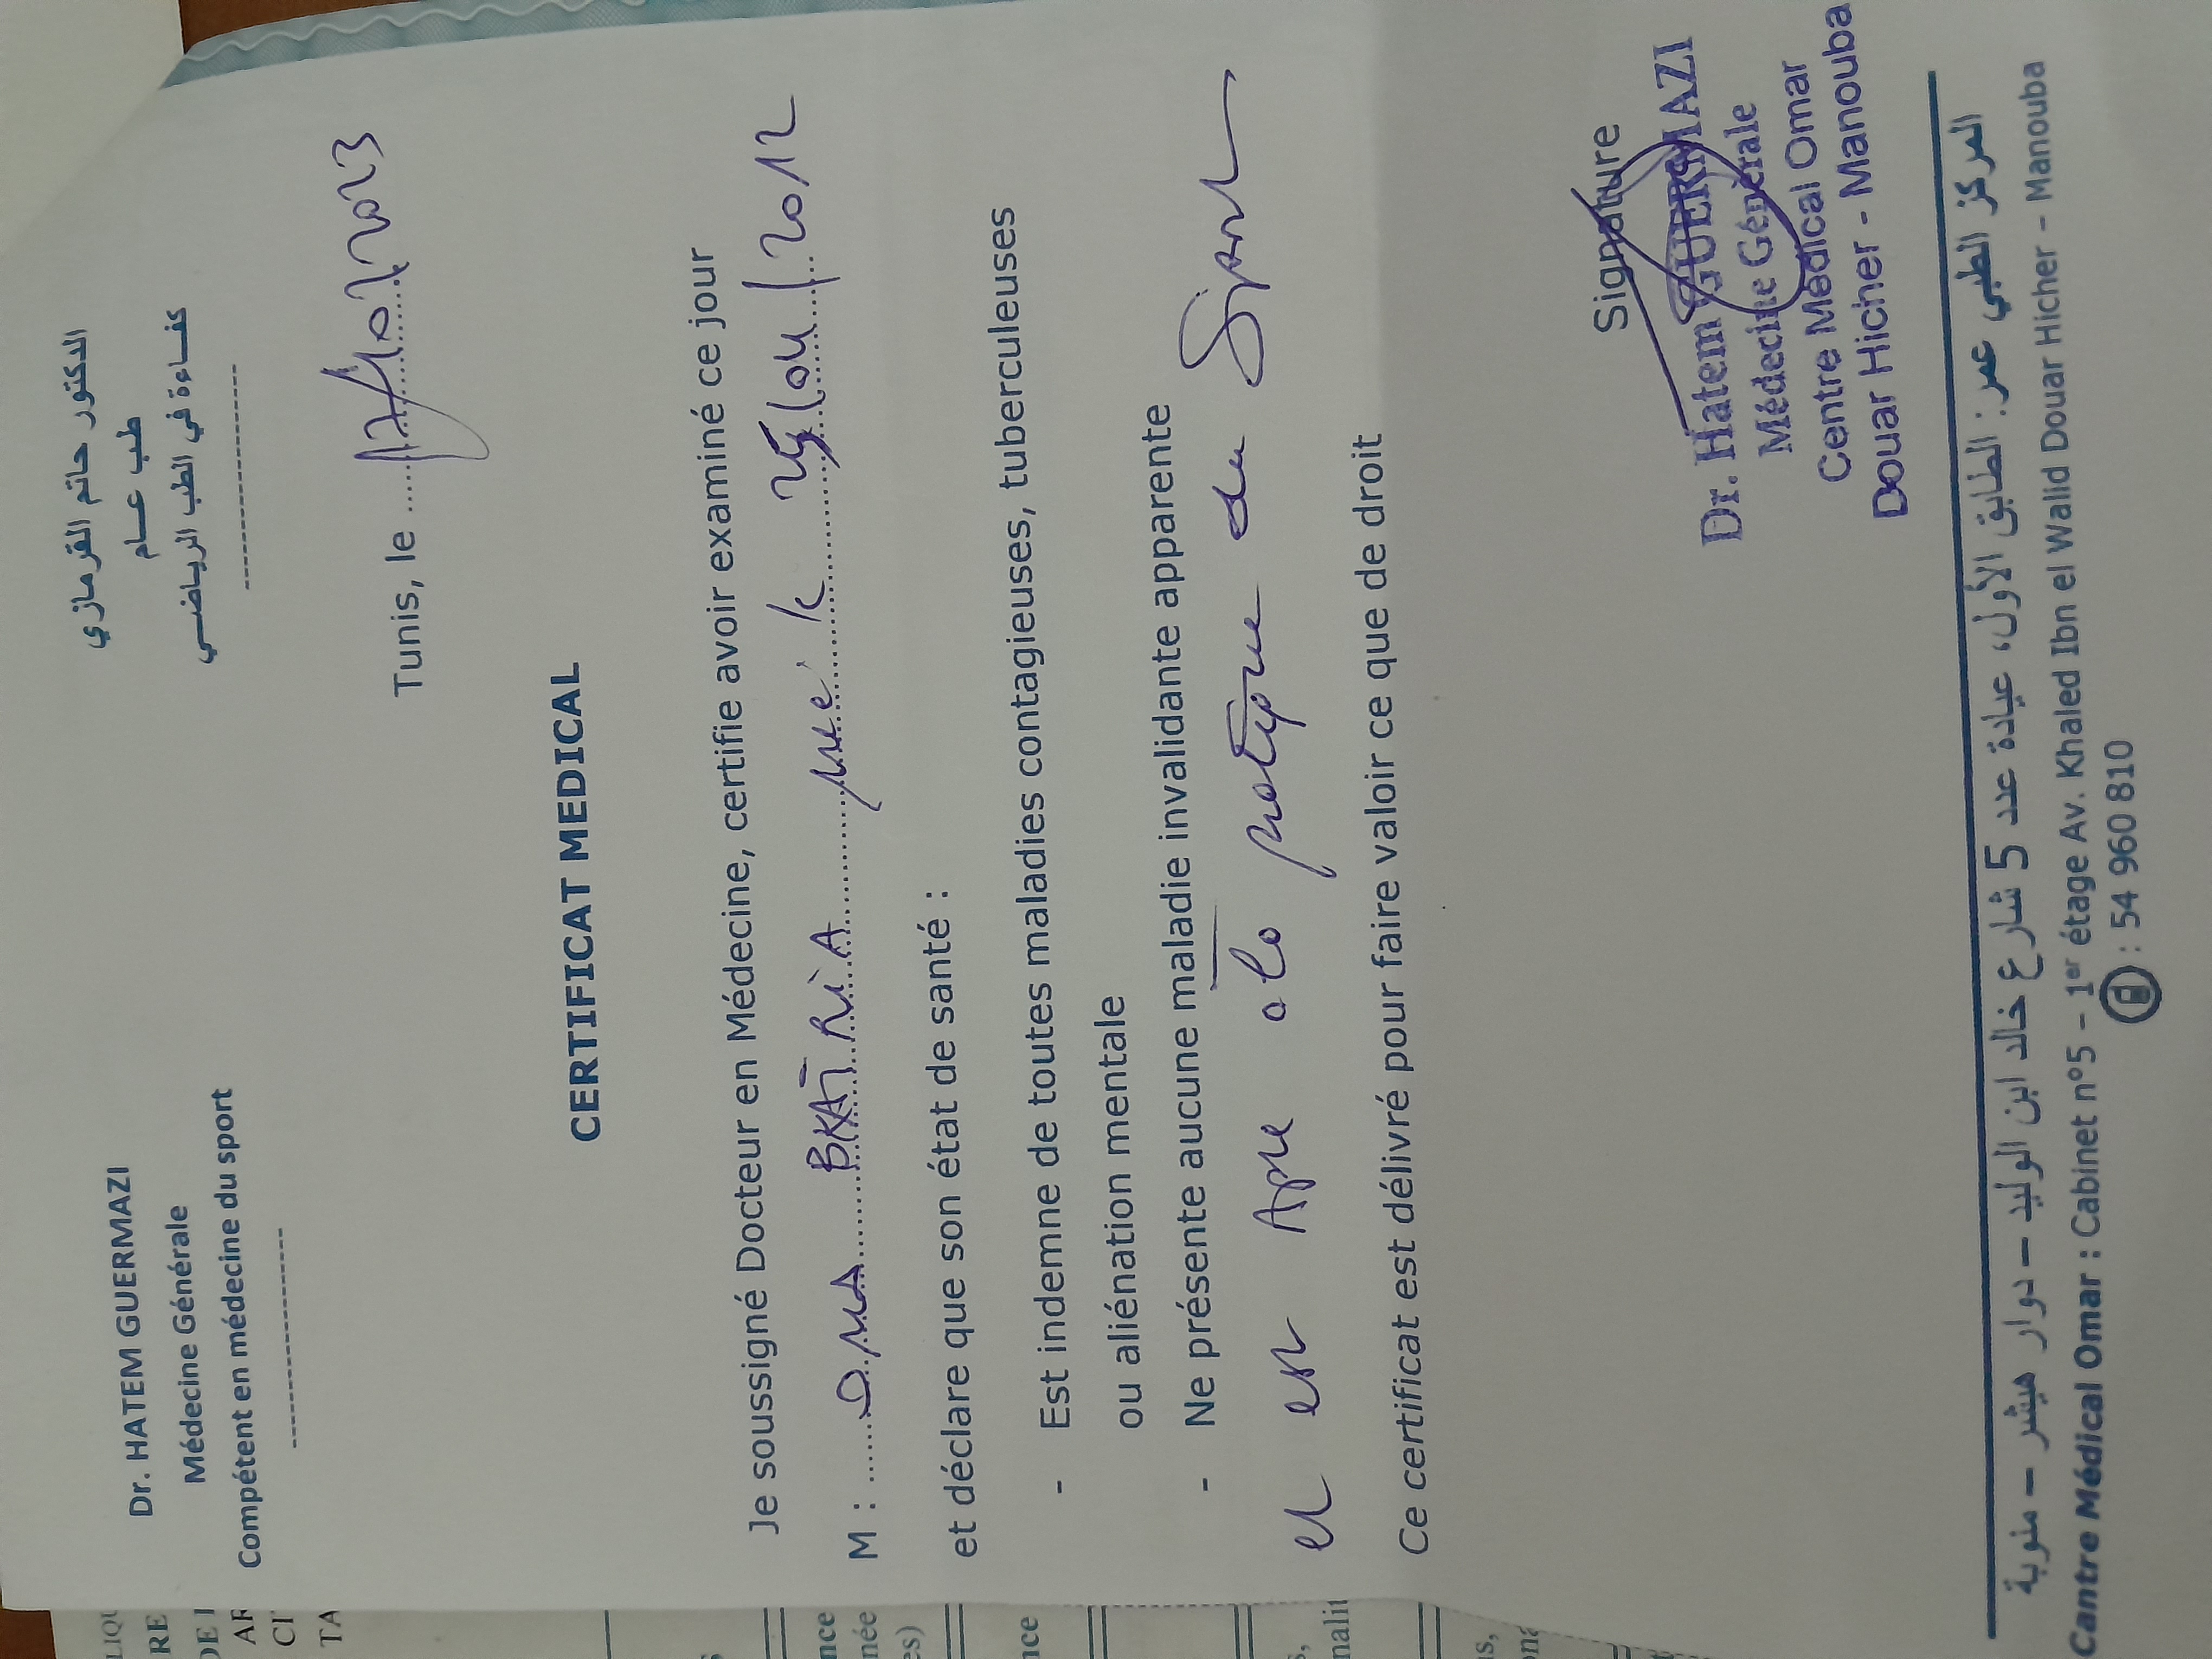 Dr. HATEM GUERMAZI
Médecine Générale
Compétent en médecine du sport
الدكتور حاتم القرمازي
طب عــام
كفــاءة في الطب الرياضــي
Tunis, le 17/07/2023
CERTIFICAT MEDICAL
Je soussigné Docteur en Médecine, certifie avoir examiné ce jour
M : BKAIRIA le /04/2012
et déclare que son état de santé :
- Est indemne de toutes maladies contagieuses, tuberculeuses
ou aliénation mentale
- Ne présente aucune maladie invalidante apparente
et est Apte a la pratique du Sport
Ce certificat est délivré pour faire valoir ce que de droit
Signature
Dr. Hatem GUERMAZI
Médecine Générale
Centre Médical Omar
Douar Hicher - Manouba
المركز الطبي عمر: الطابق الأول، عيادة عدد 5 شارع خالد ابن الوليد – دوار هيشر – منوبة
Cantre Médical Omar : Cabinet n°5 – 1er étage Av. Khaled Ibn el Walid Douar Hicher – Manouba
: 54 960 810
LIQU
RE
DE
AR
CI
TA
nce
mée
es)
nce
nalit